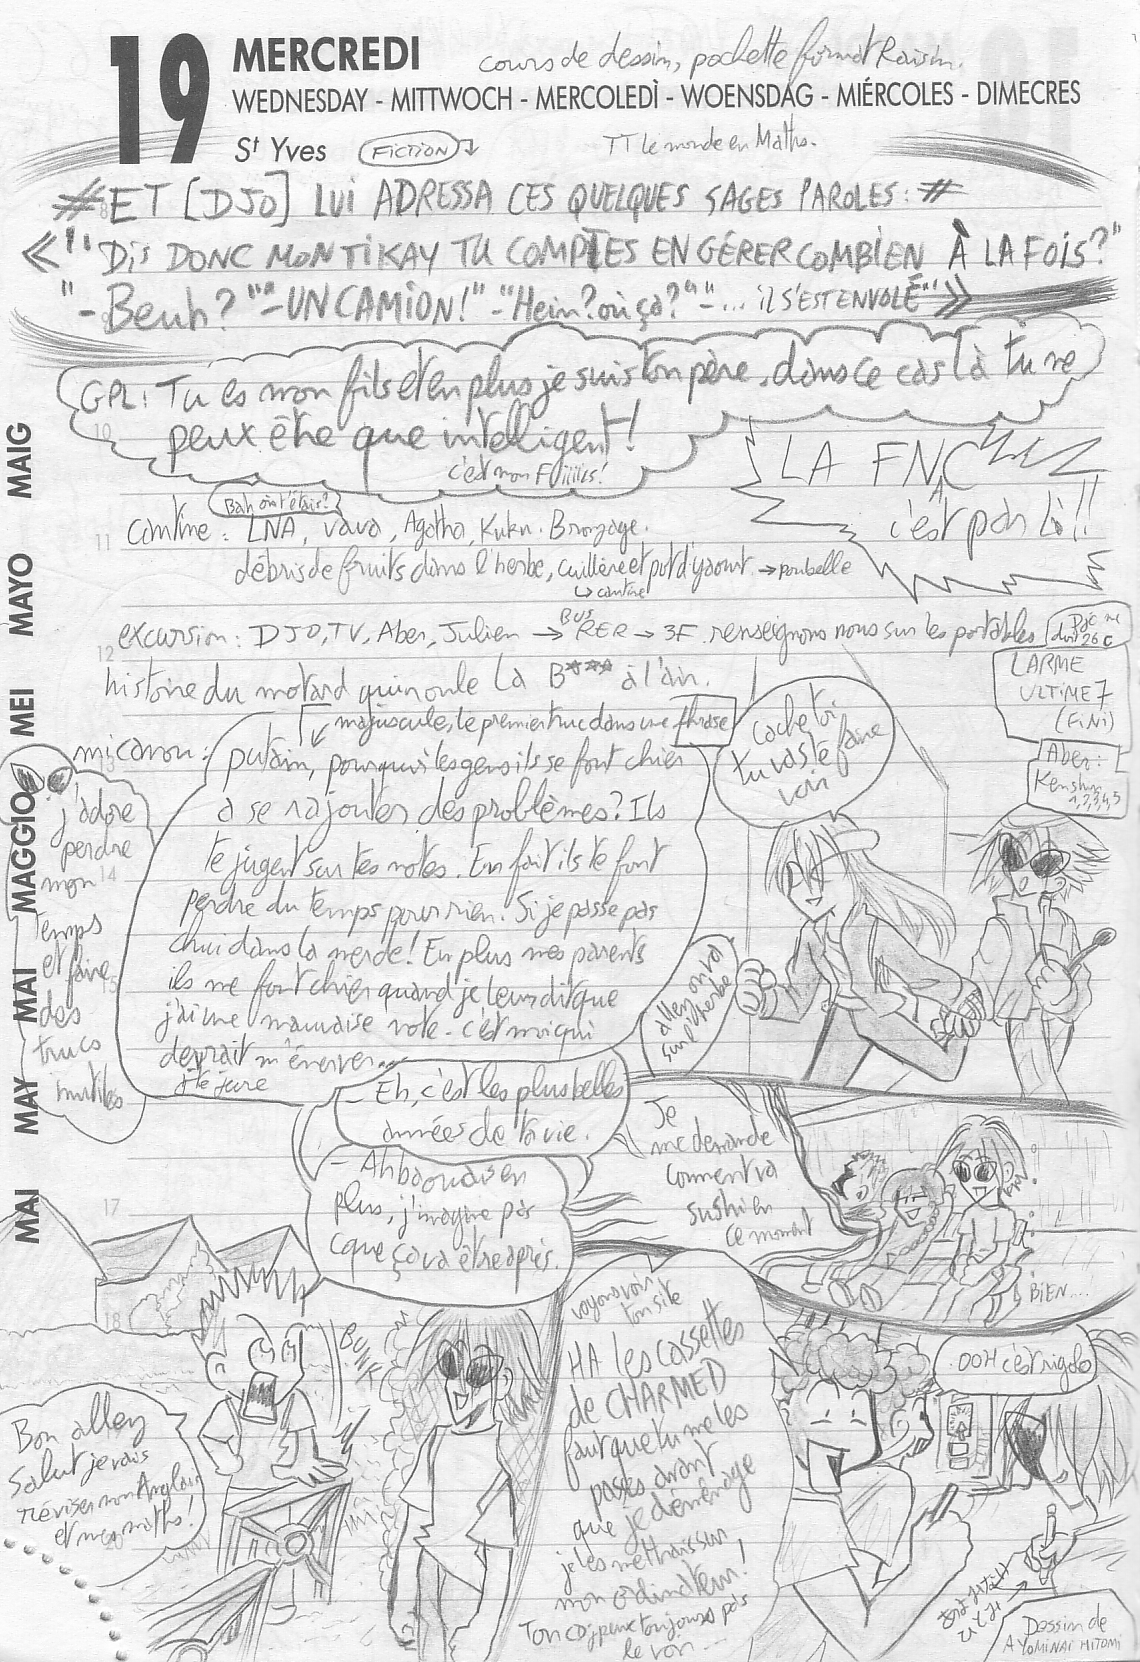 19 MERCREDI
cours de dessin, pochette format Raisin.
WEDNESDAY - MITTWOCH - MERCOLEDÌ - WOENSDAG - MIÉRCOLES - DIMECRES
St Yves
FICTION
TT le monde en Maths.
#ET [DJO] LUI ADRESSA CES QUELQUES SAGES PAROLES: #
«"Dis DONC MON TIKAY TU COMPTES EN GÉRER COMBIEN À LA FOIS?"
"-Beuh?" "-UN CAMION!" -"Hein? où ça?" "-... iL S'EST ENVOLÉ" »
GPL: Tu es mon fils et en plus je suis ton père, dans ce cas là tu ne
peux être que intelligent!
c'est mon Fiiiiils!
LA FNAC
c'est par là!!
Bah où t'étais?
11
cantine: LNA, vava, Agatha, Kukn. Bronzage.
débris de fruits dans l'herbe, cuillère et pot d'yaourt → poubelle
↳ cantine
excursion: DJO, TV, Aber, Julien → BUS RER → 3F. renseignons nous sur les portables
Pjc me doit 26c
12
histoire du motard qui roule la B*** à l'air.
LARME
ULTIME 7
(FiNi)
Aber:
Kenshin
1,2,3,4,5
majuscule, le premier truc dans une phrase
micanon:
putain, pourquoi les gens ils se font chier
a se rajouter des problèmes? Ils
te jugent sur tes notes. En fait ils te font
perdre du temps pour rien. Si je passe pas
chui dans la merde! En plus mes parents
ils me font chier quand je leur dit que
j'ai une mauvaise note. c'est moi qui
devrait m'énerver...
j'te jure
j'adore
perdre
mon
temps
et faire
des
trucs
inutiles
Cache toi
tu vas te faire
voir
allez on va
sur l'herbe
- Eh, c'est les plus belles
années de ta vie.
- Ah bah ouais en
plus, j'imagine pas
c'que ça va être après.
Je
me demande
comment va
sushi en
ce moment
BIEN...
MAI MAY MAI MAGGIO MEI MAYO MAIG
14
15
17
18
BUNK
Bon allez
Salut je vais
réviser mon Anglais
et mes maths!
voyons voir
ton site
HA les cassettes
de CHARMED
faut que tu me les
passes avant
que je déménage
je les mettrais sur
mon ordinateur!
Ton CD j'peux toujours pas
le voir...
OOH c'est rigolo
Dessin de
AYOMINAI HITOMI